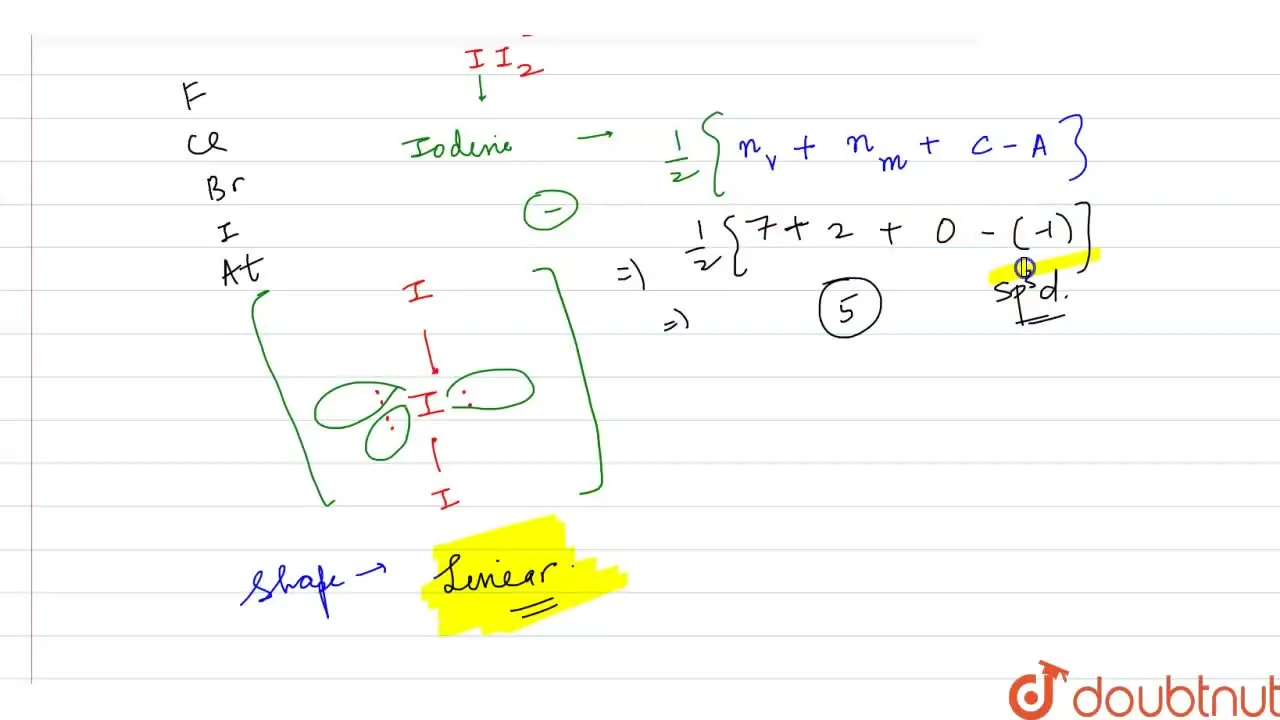 I I2-
↓
F
Cl
Br
I
At
Iodenie → 1/2 { nv + nm + C - A }
-
=> 1/2 { 7 + 2 + 0 - (-1) ]
=> 5 sp3d.
I
|
: I :
:
|
I
Shape → Leniear.
doubtnut